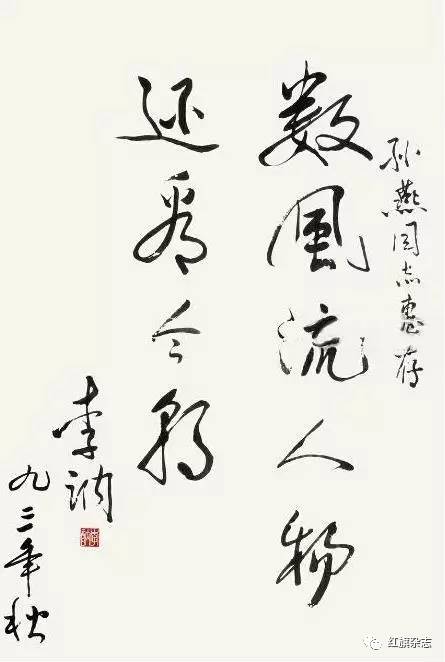 孙燕同志惠存
数风流人物
还看今朝
李讷
九三年秋
红旗杂志